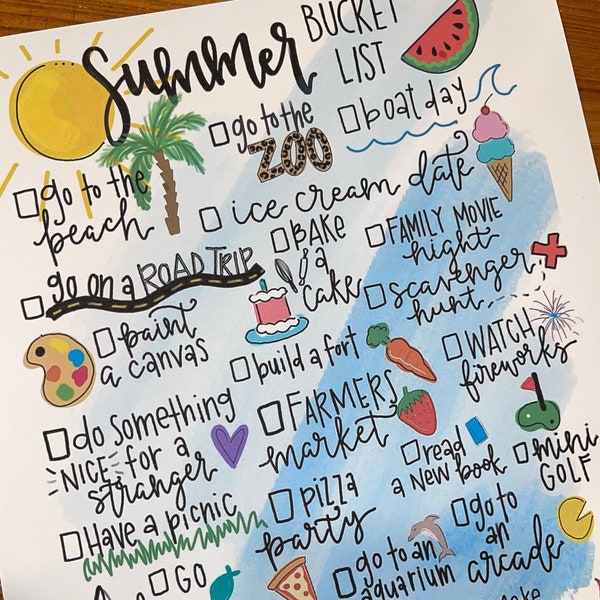 Summer BUCKET LIST
go to the ZOO
boat day
go to the beach
ice cream date
BAKE a cake
FAMILY MOVIE night
go on a ROAD TRIP
scavenger hunt
paint a canvas
build a fort
WATCH fireworks
do something NICE for a stranger
FARMERS market
read a new book
mini GOLF
Have a picnic
pizza party
go to an arcade
go to an aquarium
GO